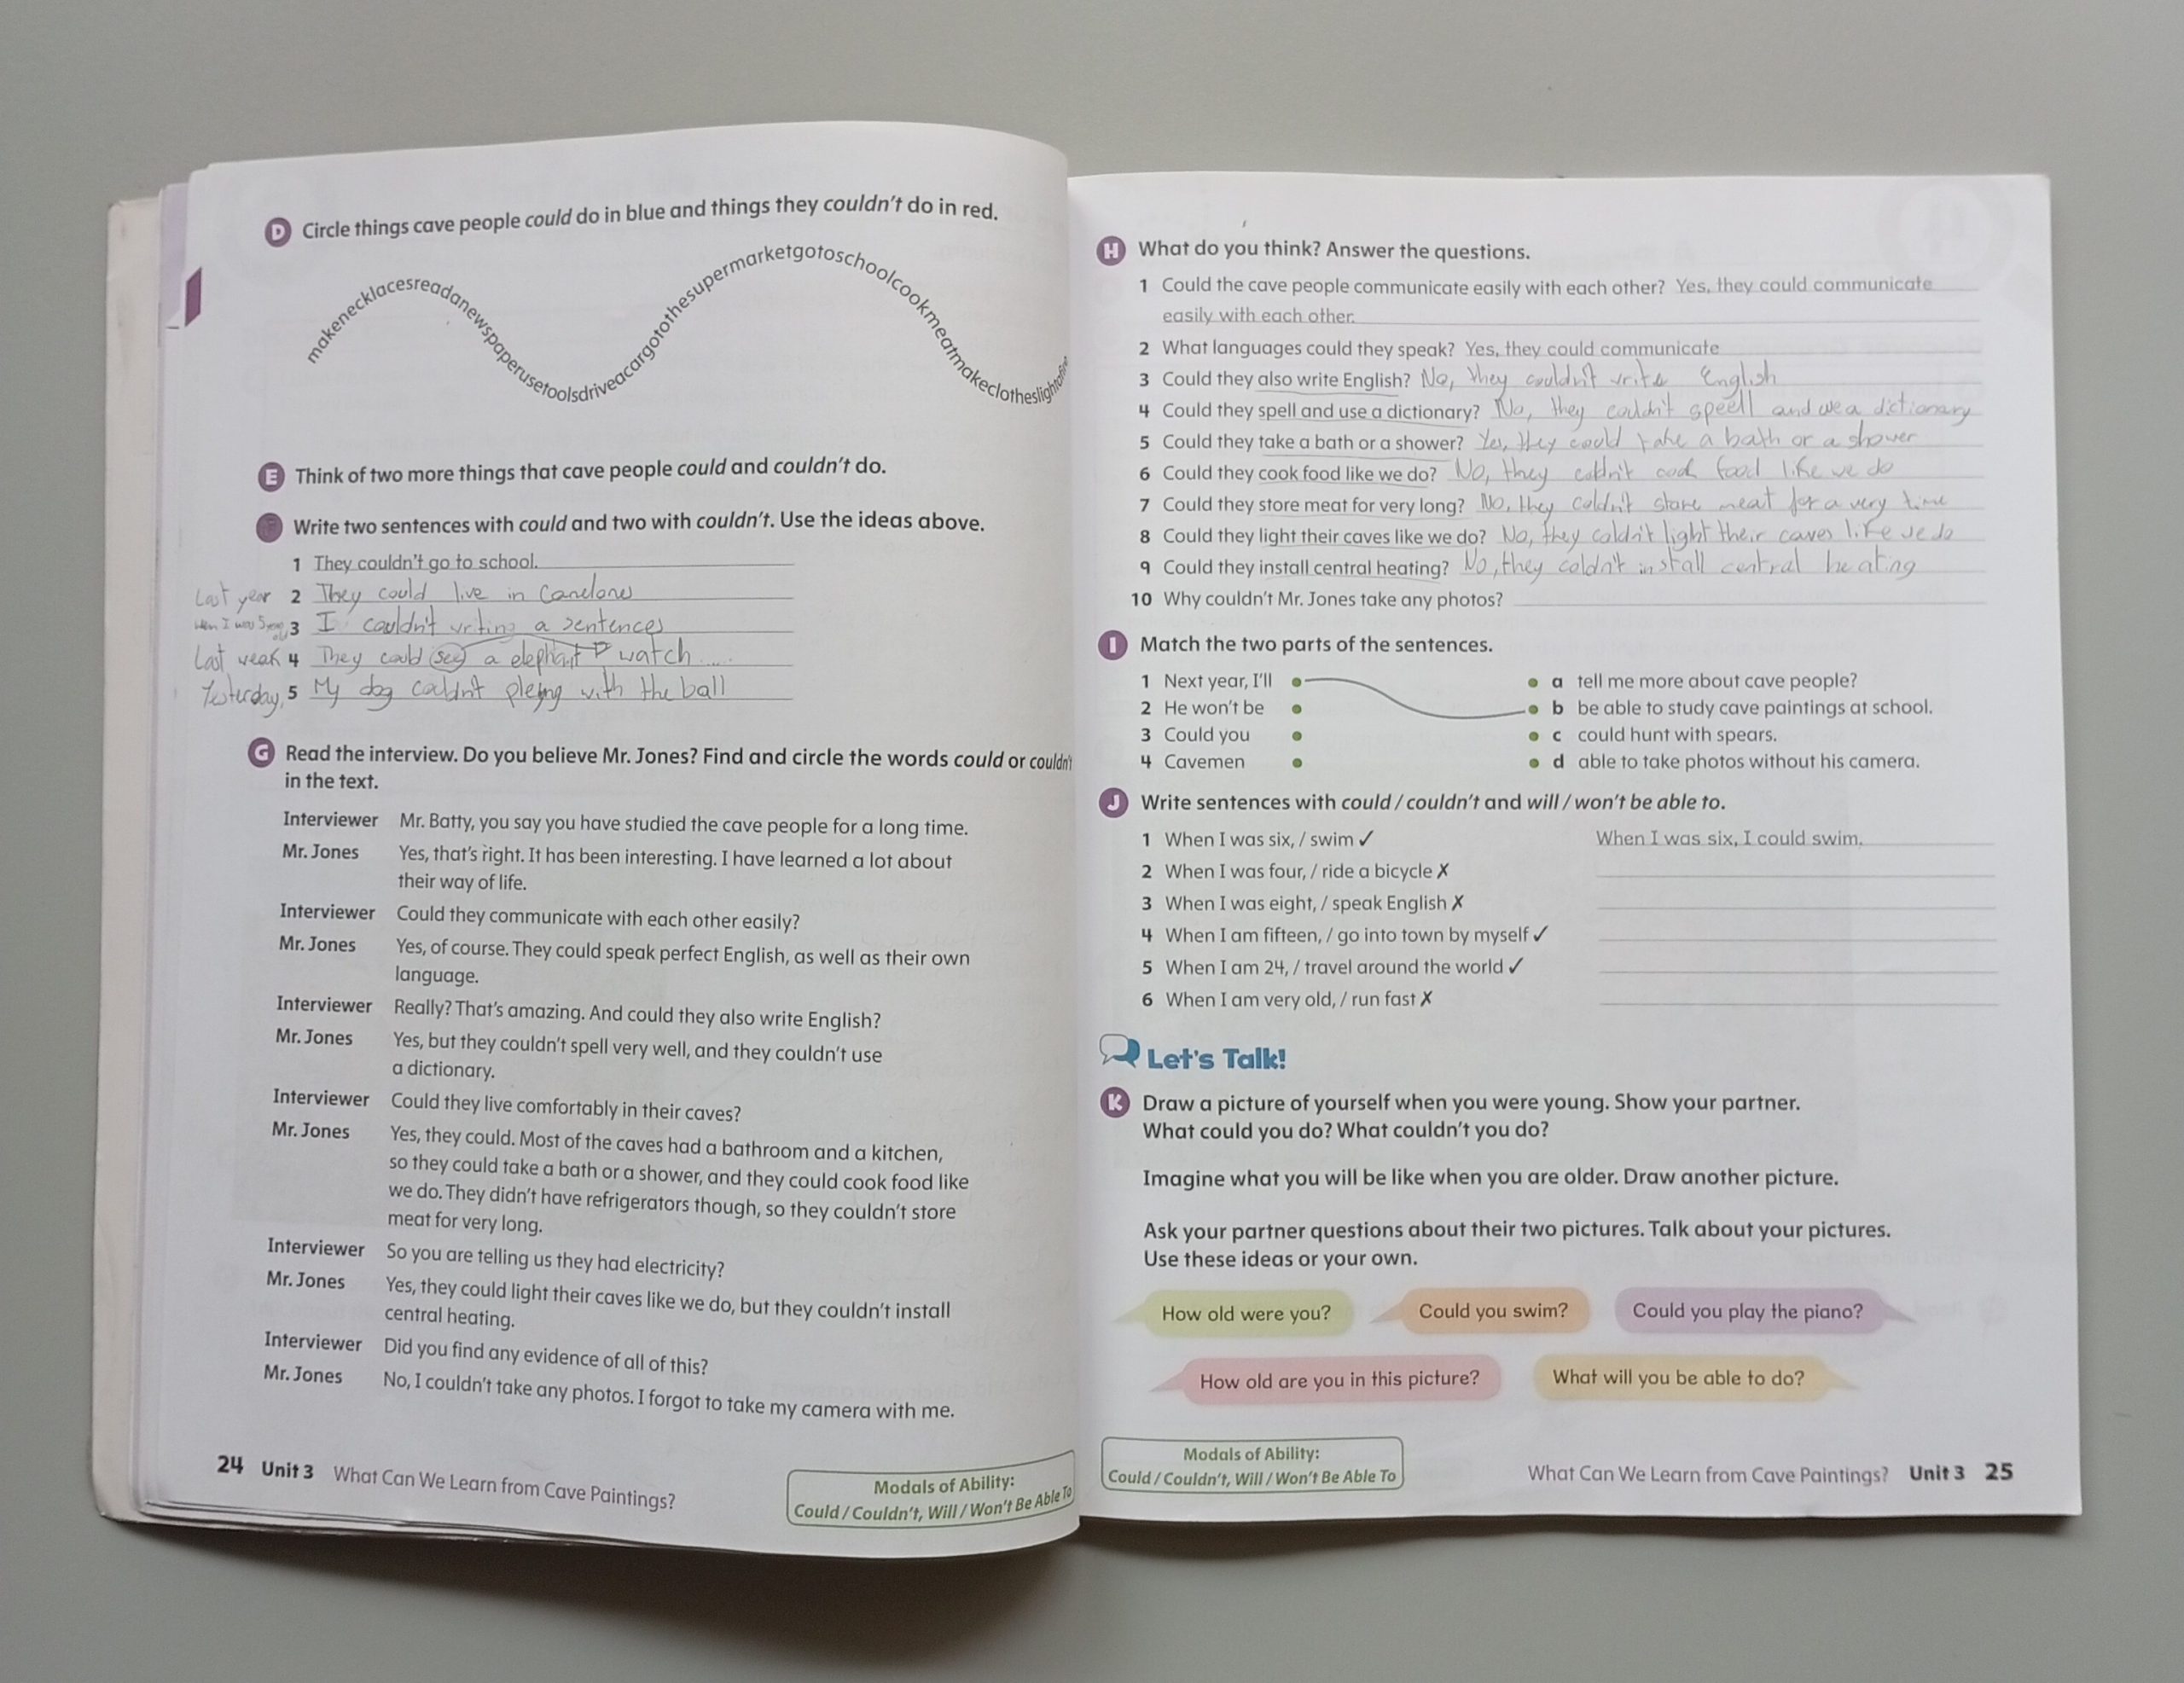 D Circle things cave people could do in blue and things they couldn't do in red.
makenecklacesreadanewspaperusetoolsdriveacargotothesupermarketgotoschoolcookmeatmakeclotheslightafire
E Think of two more things that cave people could and couldn't do.
F Write two sentences with could and two with couldn't. Use the ideas above.
1 They couldn't go to school.
Last year 2 They could live in Canelones
When I was 5 years old 3 I couldn't writing a sentences
Last weak 4 They could see a elephant watch ....
Yesterday, 5 My dog couldn't pleyng with the ball
G Read the interview. Do you believe Mr. Jones? Find and circle the words could or couldn't
in the text.
Interviewer Mr. Batty, you say you have studied the cave people for a long time.
Mr. Jones Yes, that's right. It has been interesting. I have learned a lot about
their way of life.
Interviewer Could they communicate with each other easily?
Mr. Jones Yes, of course. They could speak perfect English, as well as their own
language.
Interviewer Really? That's amazing. And could they also write English?
Mr. Jones Yes, but they couldn't spell very well, and they couldn't use
a dictionary.
Interviewer Could they live comfortably in their caves?
Mr. Jones Yes, they could. Most of the caves had a bathroom and a kitchen,
so they could take a bath or a shower, and they could cook food like
we do. They didn't have refrigerators though, so they couldn't store
meat for very long.
Interviewer So you are telling us they had electricity?
Mr. Jones Yes, they could light their caves like we do, but they couldn't install
central heating.
Interviewer Did you find any evidence of all of this?
Mr. Jones No, I couldn't take any photos. I forgot to take my camera with me.
24 Unit 3 What Can We Learn from Cave Paintings?
Modals of Ability:
Could / Couldn't, Will / Won't Be Able To
H What do you think? Answer the questions.
1 Could the cave people communicate easily with each other? Yes, they could communicate
easily with each other.
2 What languages could they speak? Yes, they could communicate
3 Could they also write English? No, they couldn't write English
4 Could they spell and use a dictionary? No, they couldn't speell and use a dictionary
5 Could they take a bath or a shower? Yes, they could take a bath or a shower
6 Could they cook food like we do? No, they coldn't cook food like we do
7 Could they store meat for very long? No, they coldn't store meat for a very time
8 Could they light their caves like we do? No, they coldn't light their caves like we do
9 Could they install central heating? No, they coldn't install central heating
10 Why couldn't Mr. Jones take any photos?
I Match the two parts of the sentences.
1 Next year, I'll a tell me more about cave people?
2 He won't be b be able to study cave paintings at school.
3 Could you c could hunt with spears.
4 Cavemen d able to take photos without his camera.
J Write sentences with could / couldn't and will / won't be able to.
1 When I was six, / swim ✓ When I was six, I could swim.
2 When I was four, / ride a bicycle ✗
3 When I was eight, / speak English ✗
4 When I am fifteen, / go into town by myself ✓
5 When I am 24, / travel around the world ✓
6 When I am very old, / run fast ✗
Let's Talk!
K Draw a picture of yourself when you were young. Show your partner.
What could you do? What couldn't you do?
Imagine what you will be like when you are older. Draw another picture.
Ask your partner questions about their two pictures. Talk about your pictures.
Use these ideas or your own.
How old were you? Could you swim? Could you play the piano?
How old are you in this picture? What will you be able to do?
Modals of Ability:
Could / Couldn't, Will / Won't Be Able To
What Can We Learn from Cave Paintings? Unit 3 25